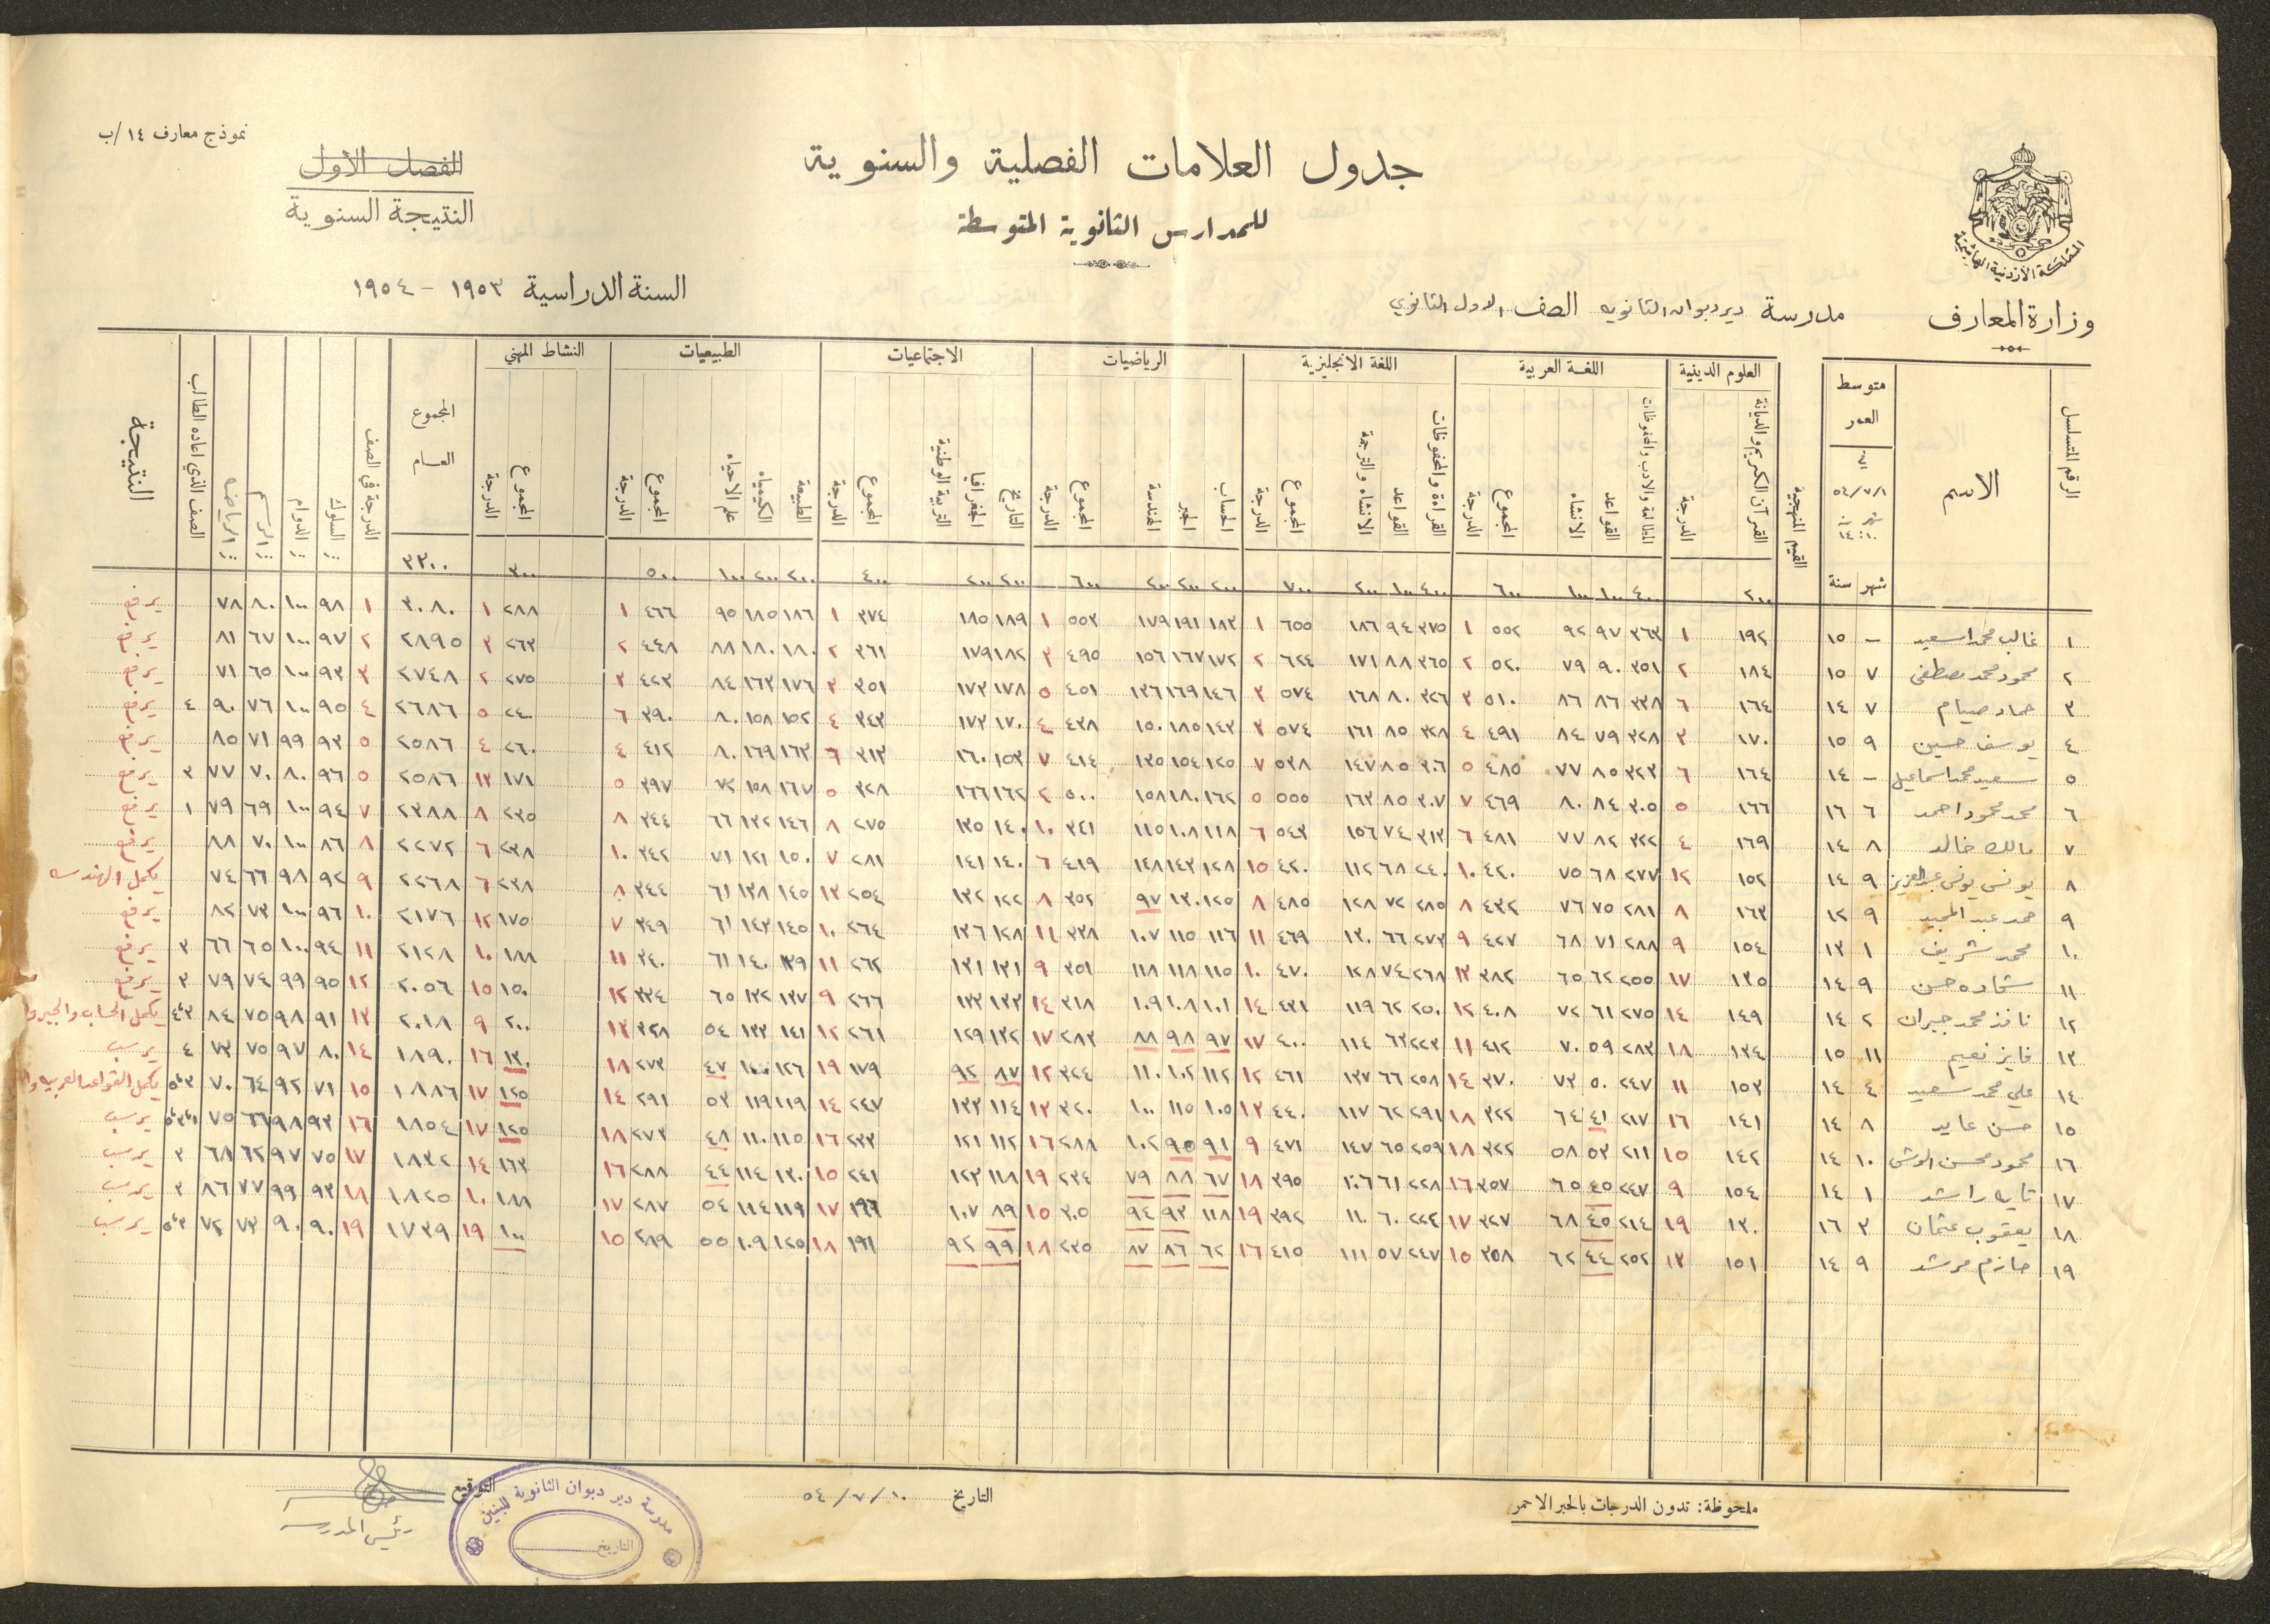 نموذج معارف ١٤/ب
جدول العلامات الفصلية والسنوية
للمدارس الثانوية المتوسطة
الفصل الاول
النتيجة السنوية
المملكة الأردنية الهاشمية
وزارة المعارف
مدرسة ديردبوان الثانويه الصف الاول الثانوي
السنة الدراسية ١٩٥٣ - ١٩٥٤
الرقم المتسلسل الاسم متوسط العمر شهر سنة القيم المنهجية العلوم الدينية اللغة العربية اللغة الانجليزية الرياضيات الاجتماعيات الطبيعيات النشاط المهني المجموع العام الدرجة في الصف السلوك الدوام الرسم الرياضه الصف الذي اعاده الطالب النتيجة
القرآن الكريم والديانة الدرجة المطالعة والادب والمحفوظات القواعد الانشاء المجموع الدرجة القراءة والمحفوظات القواعد الانشاء والترجمة المجموع الدرجة الحساب الجبر الهندسة المجموع الدرجة التاريخ الجغرافيا التربية الوطنية المجموع الدرجة الطبيعة الكيمياء علم الاحياء المجموع الدرجة المجموع الدرجة
٢٠٠ ٤٠٠ ١٠٠ ١٠٠ ٦٠٠ ٤٠٠ ١٠٠ ٢٠٠ ٧٠٠ ٢٠٠ ٢٠٠ ٢٠٠ ٦٠٠ ٢٠٠ ٢٠٠ ٤٠٠ ٢٠٠ ٢٠٠ ١٠٠ ٥٠٠ ٣٠٠ ٣٣٠٠
١ غالب محمد اسعيد - ١٥ ١٩٢ ١ ٣٦٣ ٩٧ ٩٢ ٥٥٢ ١ ٣٧٥ ٩٤ ١٨٦ ٦٥٥ ١ ١٨٣ ١٩١ ١٧٩ ٥٥٣ ١ ١٨٩ ١٨٥ ٣٧٤ ١ ١٨٦ ١٨٥ ٩٥ ٤٦٦ ١ ٢٨٨ ١ ٣٠٨٠ ١ ٩٨ ١٠٠ ٨٠ ٧٨ يرفع
٢ محمود محمد مصطفى ٧ ١٥ ١٨٤ ٢ ٣٥١ ٩٠ ٧٩ ٥٢٠ ٢ ٣٦٥ ٨٨ ١٧١ ٦٢٤ ٢ ١٧٢ ١٦٧ ١٥٦ ٤٩٥ ٣ ١٨٢ ١٧٩ ٣٦١ ٢ ١٨٠ ١٨٠ ٨٨ ٤٤٨ ٢ ٢٦٣ ٣ ٢٨٩٥ ٢ ٩٧ ١٠٠ ٦٧ ٨١ يرفع
٣ حماد صيام ٧ ١٤ ١٦٤ ٦ ٣٣٨ ٨٦ ٨٦ ٥١٠ ٣ ٣٢٦ ٨٠ ١٦٨ ٥٧٤ ٣ ١٤٦ ١٦٩ ١٣٦ ٤٥١ ٥ ١٧٨ ١٧٣ ٣٥١ ٣ ١٧٦ ١٦٣ ٨٤ ٤٢٣ ٣ ٢٧٥ ٢ ٢٧٤٨ ٣ ٩٣ ١٠٠ ٦٥ ٧١ يرفع
٤ يوسف حسين ٩ ١٥ ١٧٠ ٣ ٣٢٨ ٧٩ ٨٤ ٤٩١ ٤ ٣٢٨ ٨٥ ١٦١ ٥٧٤ ٣ ١٤٣ ١٨٥ ١٥٠ ٤٧٨ ٤ ١٧٠ ١٧٣ ٣٤٣ ٤ ١٥٢ ١٥٨ ٨٠ ٣٩٠ ٦ ٢٤٠ ٥ ٢٦٨٦ ٤ ٩٥ ١٠٠ ٧٦ ٩٠ ٤ يرفع
٥ سعيد محمد اسماعيل - ١٤ ١٦٤ ٦ ٣٢٣ ٨٥ ٧٧ ٤٨٥ ٥ ٣٠٦ ٨٥ ١٤٧ ٥٣٨ ٧ ١٢٥ ١٥٤ ١٣٥ ٤١٤ ٧ ١٥٣ ١٦٠ ٣١٣ ٦ ١٦٣ ١٦٩ ٨٠ ٤١٢ ٤ ٢٦٠ ٤ ٢٥٨٦ ٥ ٩٣ ٩٩ ٧١ ٨٥ يرفع
٦ محمد محمود احمد ٦ ١٦ ١٦٦ ٥ ٣٠٥ ٨٤ ٨٠ ٤٦٩ ٧ ٣٠٧ ٨٥ ١٦٣ ٥٥٥ ٥ ١٦٢ ١٨٠ ١٥٨ ٥٠٠ ٢ ١٦٢ ١٦٦ ٣٢٨ ٥ ١٦٧ ١٥٨ ٧٢ ٣٩٧ ٥ ١٧١ ١٣ ٢٥٨٦ ٥ ٩٦ ٨٠ ٧٠ ٧٧ ٣ يرفع
٧ مالك خالد ٨ ١٤ ١٦٩ ٤ ٣٢٢ ٨٢ ٧٧ ٤٨١ ٦ ٣١٣ ٧٤ ١٥٦ ٥٤٣ ٦ ١١٨ ١٠٨ ١١٥ ٣٤١ ١٠ ١٤٠ ١٣٥ ٢٧٥ ٨ ١٤٦ ١٣٢ ٦٦ ٣٤٤ ٨ ٢٣٥ ٨ ٢٣٨٨ ٧ ٩٤ ١٠٠ ٦٩ ٧٩ ١ يرفع
٨ يونس يونس عبدالعزيز ٩ ١٤ ١٥٢ ١٢ ٢٧٧ ٦٨ ٧٥ ٤٢٠ ١٠ ٢٤٠ ٦٨ ١١٢ ٤٢٠ ١٥ ١٢٨ ١٤٣ ١٤٨ ٤١٩ ٦ ١٤٠ ١٤١ ٢٨١ ٧ ١٥٠ ١٢١ ٧١ ٣٤٢ ١٠ ٢٣٨ ٦ ٢٢٧٢ ٨ ٨٦ ١٠٠ ٧٠ ٨٨ يرفع
٩ حمد عبد المجيد ٩ ١٢ ١٦٣ ٨ ٢٨١ ٧٥ ٧٦ ٤٣٢ ٨ ٢٨٥ ٧٢ ١٢٨ ٤٨٥ ٨ ١٢٥ ١٣٠ ٩٧ ٣٥٢ ٨ ١٢٢ ١٣٢ ٢٥٤ ١٣ ١٤٥ ١٣٨ ٦١ ٣٤٤ ٨ ٢٣٨ ٦ ٢٢٦٨ ٩ ٩٢ ٩٨ ٦٦ ٧٤ يكمل الهندسه
١٠ محمد شريف ١ ١٣ ١٥٤ ٩ ٢٨٨ ٧١ ٦٨ ٤٢٧ ٩ ٢٧٣ ٦٦ ١٣٠ ٤٦٩ ١١ ١١٦ ١١٥ ١٠٧ ٣٣٨ ١١ ١٢٨ ١٣٦ ٢٦٤ ١٠ ١٤٥ ١٤٣ ٦١ ٣٤٩ ٧ ١٧٥ ١٢ ٢١٧٦ ١٠ ٩٦ ١٠٠ ٧٣ ٨٢ يرفع
١١ شحاده حسن ٩ ١٤ ١٣٥ ١٧ ٢٥٥ ٦٢ ٦٥ ٣٨٢ ١٣ ٢٦٨ ٧٤ ١٢٨ ٤٧٠ ١٠ ١١٥ ١١٨ ١١٨ ٣٥١ ٩ ١٣١ ١٣١ ٢٦٢ ١١ ١٣٩ ١٤٠ ٦١ ٣٤٠ ١١ ١٨٨ ١٠ ٢١٢٨ ١١ ٩٤ ١٠٠ ٦٥ ٦٦ ٣ يرفع
١٢ نافذ محمد جبران ٢ ١٤ ١٤٩ ١٤ ٢٧٥ ٦١ ٧٢ ٤٠٨ ١٢ ٢٥٠ ٦٢ ١١٩ ٤٣١ ١٤ ١٠١ ١٠٨ ١٠٩ ٣١٨ ١٤ ١٣٣ ١٣٣ ٢٦٦ ٩ ١٣٧ ١٣٢ ٦٥ ٣٣٤ ١٢ ١٥٠ ١٥ ٢٠٥٦ ١٢ ٩٥ ٩٩ ٧٤ ٧٩ ٣ يرفع
١٣ فايز نعيم ١١ ١٥ ١٣٤ ١٨ ٢٨٣ ٥٩ ٧٠ ٤١٢ ١١ ٢٢٣ ٦٣ ١١٤ ٤٠٠ ١٧ ٩٧ ٩٨ ٨٨ ٢٨٣ ١٧ ١٣٢ ١٢٩ ٢٦١ ١٢ ١٤١ ١٣٣ ٥٤ ٣٢٨ ١٣ ٢٠٠ ٩ ٢٠١٨ ١٣ ٩١ ٩٨ ٧٥ ٨٤ ٣،٤ يكمل الحساب والجبر وا
١٤ علي محمد سعيد ٤ ١٤ ١٥٣ ١١ ٢٤٧ ٥٠ ٧٣ ٣٧٠ ١٤ ٢٥٨ ٦٦ ١٣٧ ٤٦١ ١٢ ١١٢ ١٠٢ ١١٠ ٣٢٤ ١٢ ٨٧ ٩٢ ١٧٩ ١٩ ١٢٦ ١٠٠ ٤٧ ٢٧٣ ١٨ ١٣٠ ١٦ ١٨٩٠ ١٤ ٨٠ ٩٧ ٧٥ ٧٣ ٤ يرسب
١٥ حسن عايد ٨ ١٤ ١٤١ ١٦ ٢١٧ ٤١ ٦٤ ٣٢٢ ١٨ ٢٦١ ٦٢ ١١٧ ٤٤٠ ١٣ ١٠٥ ١١٥ ١٠٠ ٣٢٠ ١٣ ١١٤ ١٣٣ ٢٤٧ ١٤ ١١٩ ١١٩ ٥٣ ٢٩١ ١٤ ١٢٥ ١٧ ١٨٨٦ ١٥ ٧١ ٩٢ ٦٤ ٧٠ ٣،٥ يكمل القواعد العربيه وا
١٦ محمود محسن الوشى ١٠ ١٤ ١٤٢ ١٥ ٢١١ ٥٣ ٥٨ ٣٢٢ ١٨ ٢٥٩ ٦٥ ١٤٧ ٤٧١ ٩ ٩١ ٩٥ ١٠٢ ٢٨٨ ١٦ ١١٢ ١٢١ ٢٣٣ ١٦ ١١٥ ١١٠ ٤٨ ٢٧٣ ١٨ ١٢٥ ١٧ ١٨٥٤ ١٦ ٩٣ ٩٨ ٦٦ ٧٥ ١،٣،٥ يرسب
١٧ تايه راشد ١ ١٤ ١٥٤ ٩ ٢٤٧ ٤٥ ٦٥ ٣٥٧ ١٦ ٢٢٨ ٦١ ١٠٦ ٣٩٥ ١٨ ٦٧ ٨٨ ٧٩ ٢٣٤ ١٩ ١١٨ ١٢٣ ٢٤١ ١٥ ١٣٠ ١١٤ ٤٤ ٢٨٨ ١٦ ١٦٣ ١٤ ١٨٣٢ ١٧ ٧٥ ٩٧ ٦٢ ٦٨ ٣ يرسب
١٨ يعقوب عثمان ٣ ١٦ ١٣٠ ١٩ ٢١٤ ٤٥ ٦٨ ٣٢٧ ١٧ ٢٢٢ ٦٠ ١١٠ ٣٩٢ ١٩ ١١٨ ٩٣ ٩٤ ٣٠٥ ١٥ ٨٩ ١٠٧ ١٩٦ ١٧ ١١٩ ١١٤ ٥٤ ٢٨٧ ١٧ ١٨٨ ١٠ ١٨٢٥ ١٨ ٩٣ ٩٩ ٧٧ ٨٦ ٣ يرسب
١٩ حازم مرشد ٩ ١٤ ١٥١ ١٣ ٢٥٢ ٤٤ ٦٢ ٣٥٨ ١٥ ٢٤٧ ٥٧ ١١١ ٤١٥ ١٦ ٦٢ ٨٦ ٨٧ ٢٣٥ ١٨ ٩٩ ٩٢ ١٩١ ١٨ ١٢٥ ١٠٩ ٥٥ ٢٨٩ ١٥ ١٠٠ ١٩ ١٧٣٩ ١٩ ٩٠ ٩٠ ٧٣ ٧٢ ٣،٥ يرسب
ملحوظة: تدون الدرجات بالحبر الاحمر
التاريخ ١٠/٧/٥٤
التوقيع
رئيس المدرسه
مدرسة دير دبوان الثانوية للبنين
التاريخ